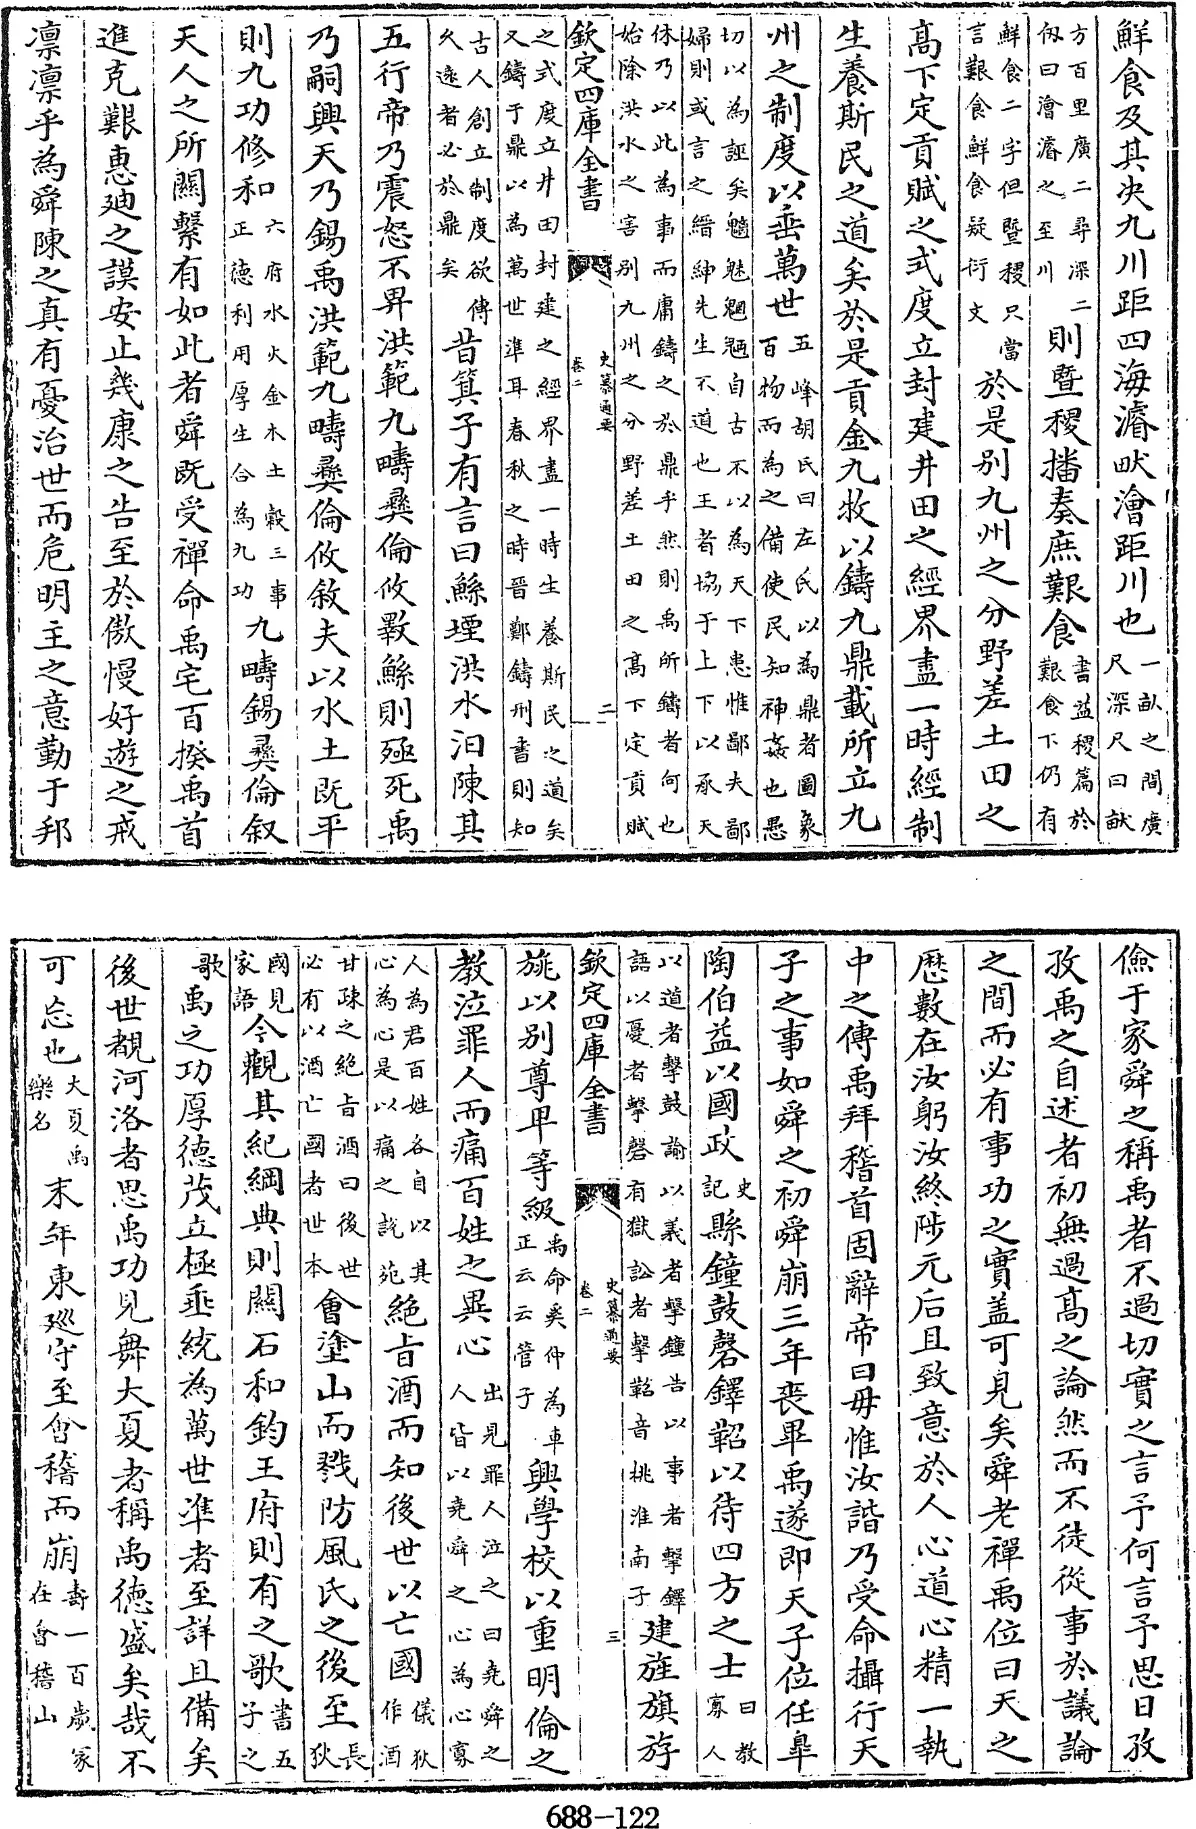 鮮食及其决九川距四海濬畎澮距川也一畝之間廣
尺深尺曰畎
方百里廣二尋深二
仞曰澮濬之至川
則暨稷播奏庶艱食書益稷篇於
艱食下仍有
鮮食二字但暨稷只當
言艱食鮮食疑衍文
於是别九州之分野差土田之
髙下定貢賦之式度立封建井田之經界盡一時經制
生養斯民之道矣於是貢金九牧以鑄九鼎載所立九
州之制度以垂萬世五峰胡氏曰左氏以為鼎者圖象
百物而為之備使民知神姦也愚
切以為誣矣魑魅魍魎自古不以為天下患惟鄙夫鄙
婦則或言之縉紳先生不道也王者協于上下以承天
休乃以此為事而庸鑄之於鼎乎然則禹所鑄者何也
始除洪水之害别九州之分野差土田之髙下定貢賦
欽定四庫全書
史纂通要
卷二
二
之式度立井田封建之經界盡一時生養斯民之道矣
又鑄于鼎以為萬世準耳春秋之時晋鄭鑄刑書則知
古人創立制度欲傳
久遠者必於鼎矣
昔箕子有言曰鯀堙洪水汩陳其
五行帝乃震怒不畀洪範九疇彜倫攸斁鯀則殛死禹
乃嗣興天乃錫禹洪範九疇彜倫攸敘夫以水土既平
則九功修和六府水火金木土榖三事
正徳利用厚生合為九功
九疇錫彜倫叙
天人之所關繫有如此者舜既受禪命禹宅百揆禹首
進克艱惠廸之謨安止幾康之告至於傲慢好遊之戒
凛凛乎為舜陳之真有憂治世而危明主之意勤于邦
儉于家舜之稱禹者不過切實之言予何言予思日孜
孜禹之自述者初無過髙之論然而不徒從事於議論
之間而必有事功之實盖可見矣舜老禪禹位曰天之
厯數在汝躬汝終陟元后且致意於人心道心精一執
中之傳禹拜稽首固辭帝曰毋惟汝諧乃受命攝行天
子之事如舜之初舜崩三年喪畢禹遂即天子位任臯
陶伯益以國政史
記
縣鐘鼓磬鐸鞀以待四方之士曰教
寡人
以道者擊鼓諭以義者擊鐘告以事者擊鐸
語以憂者擊磬有獄訟者擊鞀音桃淮南子
建旌旗斿
欽定四庫全書
史纂通要
卷二
三
旐以别尊卑等級禹命奚仲為車
正云云管子
興學校以重明倫之
教泣罪人而痛百姓之異心出見罪人泣之曰堯舜之
人皆以堯舜之心為心寡
人為君百姓各自以其
心為心是以痛之説苑
絶㫖酒而知後世以亡國儀狄
作酒
甘疎之絶㫖酒曰後世
必有以酒亡國者世本
會塗山而戮防風氏之後至長
狄
國見
家語
今觀其紀綱典則關石和鈞王府則有之歌書五
子之
歌禹之功厚徳茂立極垂統為萬世凖者至詳且備矣
後世覩河洛者思禹功見舞大夏者稱禹徳盛矣哉不
可忘也大夏禹
樂名
末年東廵守至㑹稽而崩壽一百歲冡
在㑹稽山
688-122